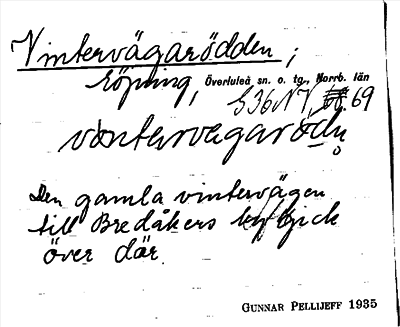 Vintervägarödden;
röjning, Överluleå sn. o. tg., Norrb. län
S36NV, 69
vintervägarödn
Den gamla vintervägen
till Bredåkers gick
över där.
GUNNAR PELLIJEFF 1935